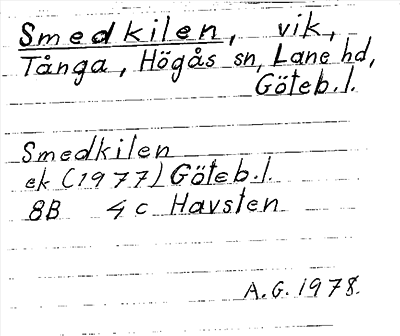 Smedkilen, vik,
Tånga, Högås sn, Lane hd,
Göteb. l.
Smedkilen
ek (1977) Göteb. l.
8B 4c Havsten
A. G. 1978.